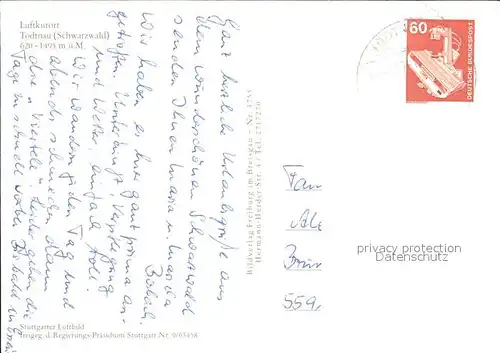 Luftkurort
Todtnau (Schwarzwald)
620–1495 m ü.M.
Ganz herzliche Urlaubsgrüße aus
dem wunderschönen Schwarzwald
senden Ihnen Maria u.
Wir haben es hier ganz prima an-
getroffen. Unterkunft, Verpflegung
und Wetter einfach toll.
Wir wandern jeden Tag und
abends schmecken dann
die "Viertele". Leider gehen die
Tage so schnell vorbei.
Bildverlag Freiburg im Breisgau – Nr. 1755
Hermann-Herder-Str. 4 / Tel. 2717270
Stuttgarter Luftbild
freigeg. d. Regierungs-Präsidium Stuttgart Nr. 9/63458
60
DEUTSCHE BUNDESPOST
Fam
559
privacy protection
Datenschutz